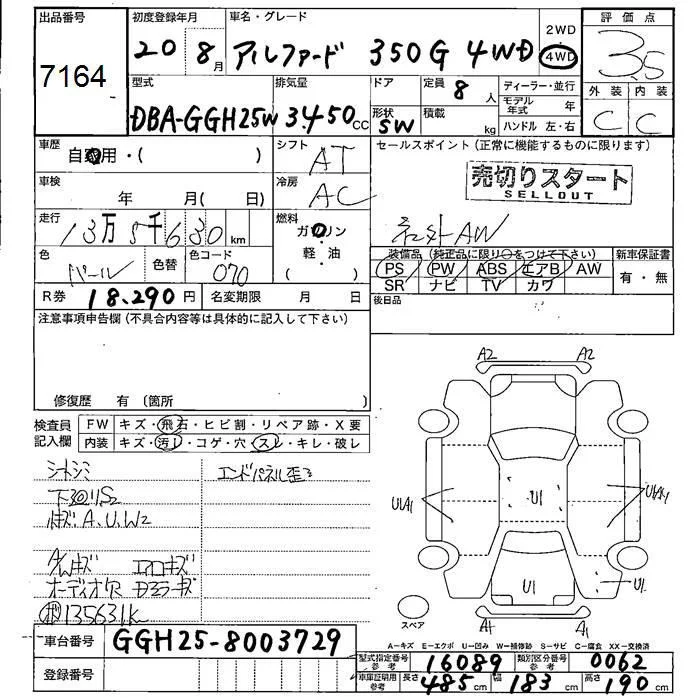 出品番号
7164
初度登録年月
20 8月
車名・グレード
アルファード 350G 4WD
2WD
4WD
評価点
3.5
外装 内装
C C
型式
DBA-GGH25W
排気量
3.450cc
ドア
形状
SW
定員
8人
積載
kg
ディーラー・並行
モデル年式 年
ハンドル 左・右
車歴
自家用・( )
車検
年 月( 日)
走行
13万5千630km
色
パール
色替
色コード
070
シフト
AT
冷房
AC
燃料
ガソリン
軽・油
( )
セールスポイント(正常に機能するものに限ります)
売切りスタート
SELLOUT
社外AW
装備品(純正品に限り○をつけて下さい)
PS PW ABS エアB AW
SR ナビ TV カワ
新車保証書
有・無
後日品
R券 18,290円
名変期限 月 日
注意事項申告欄(不具合内容等は具体的に記入して下さい)
修復歴 有(箇所 )
検査員記入欄
FW キズ・飛石・ヒビ割・リペア跡・X要
内装 キズ・汚レ・コゲ・穴・スレ・キレ・破レ
シートシミ
エンドパネル歪ミ
下廻りS2
キズA、U、W2
AWキズ エアロキズ
オーディオ欠 Dミラーキズ
135631k
A2 A2
UA1 U1 UA1
U1 U1
A1 A1
スペア
A-キズ E-エクボ U-凹み W-補修跡 S-サビ C-腐食 XX-交換済
車台番号
GGH25-8003729
登録番号
型式指定番号参考 16089
類別区分番号参考 0062
車庫証明用参考 長さ 485cm 幅 183cm 高さ 190cm